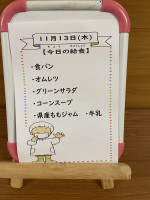 11月13日(木)
【今日の給食】
・食パン
・オムレツ
・グリーンサラダ
・コーンスープ
・県産ももジャム ・牛乳